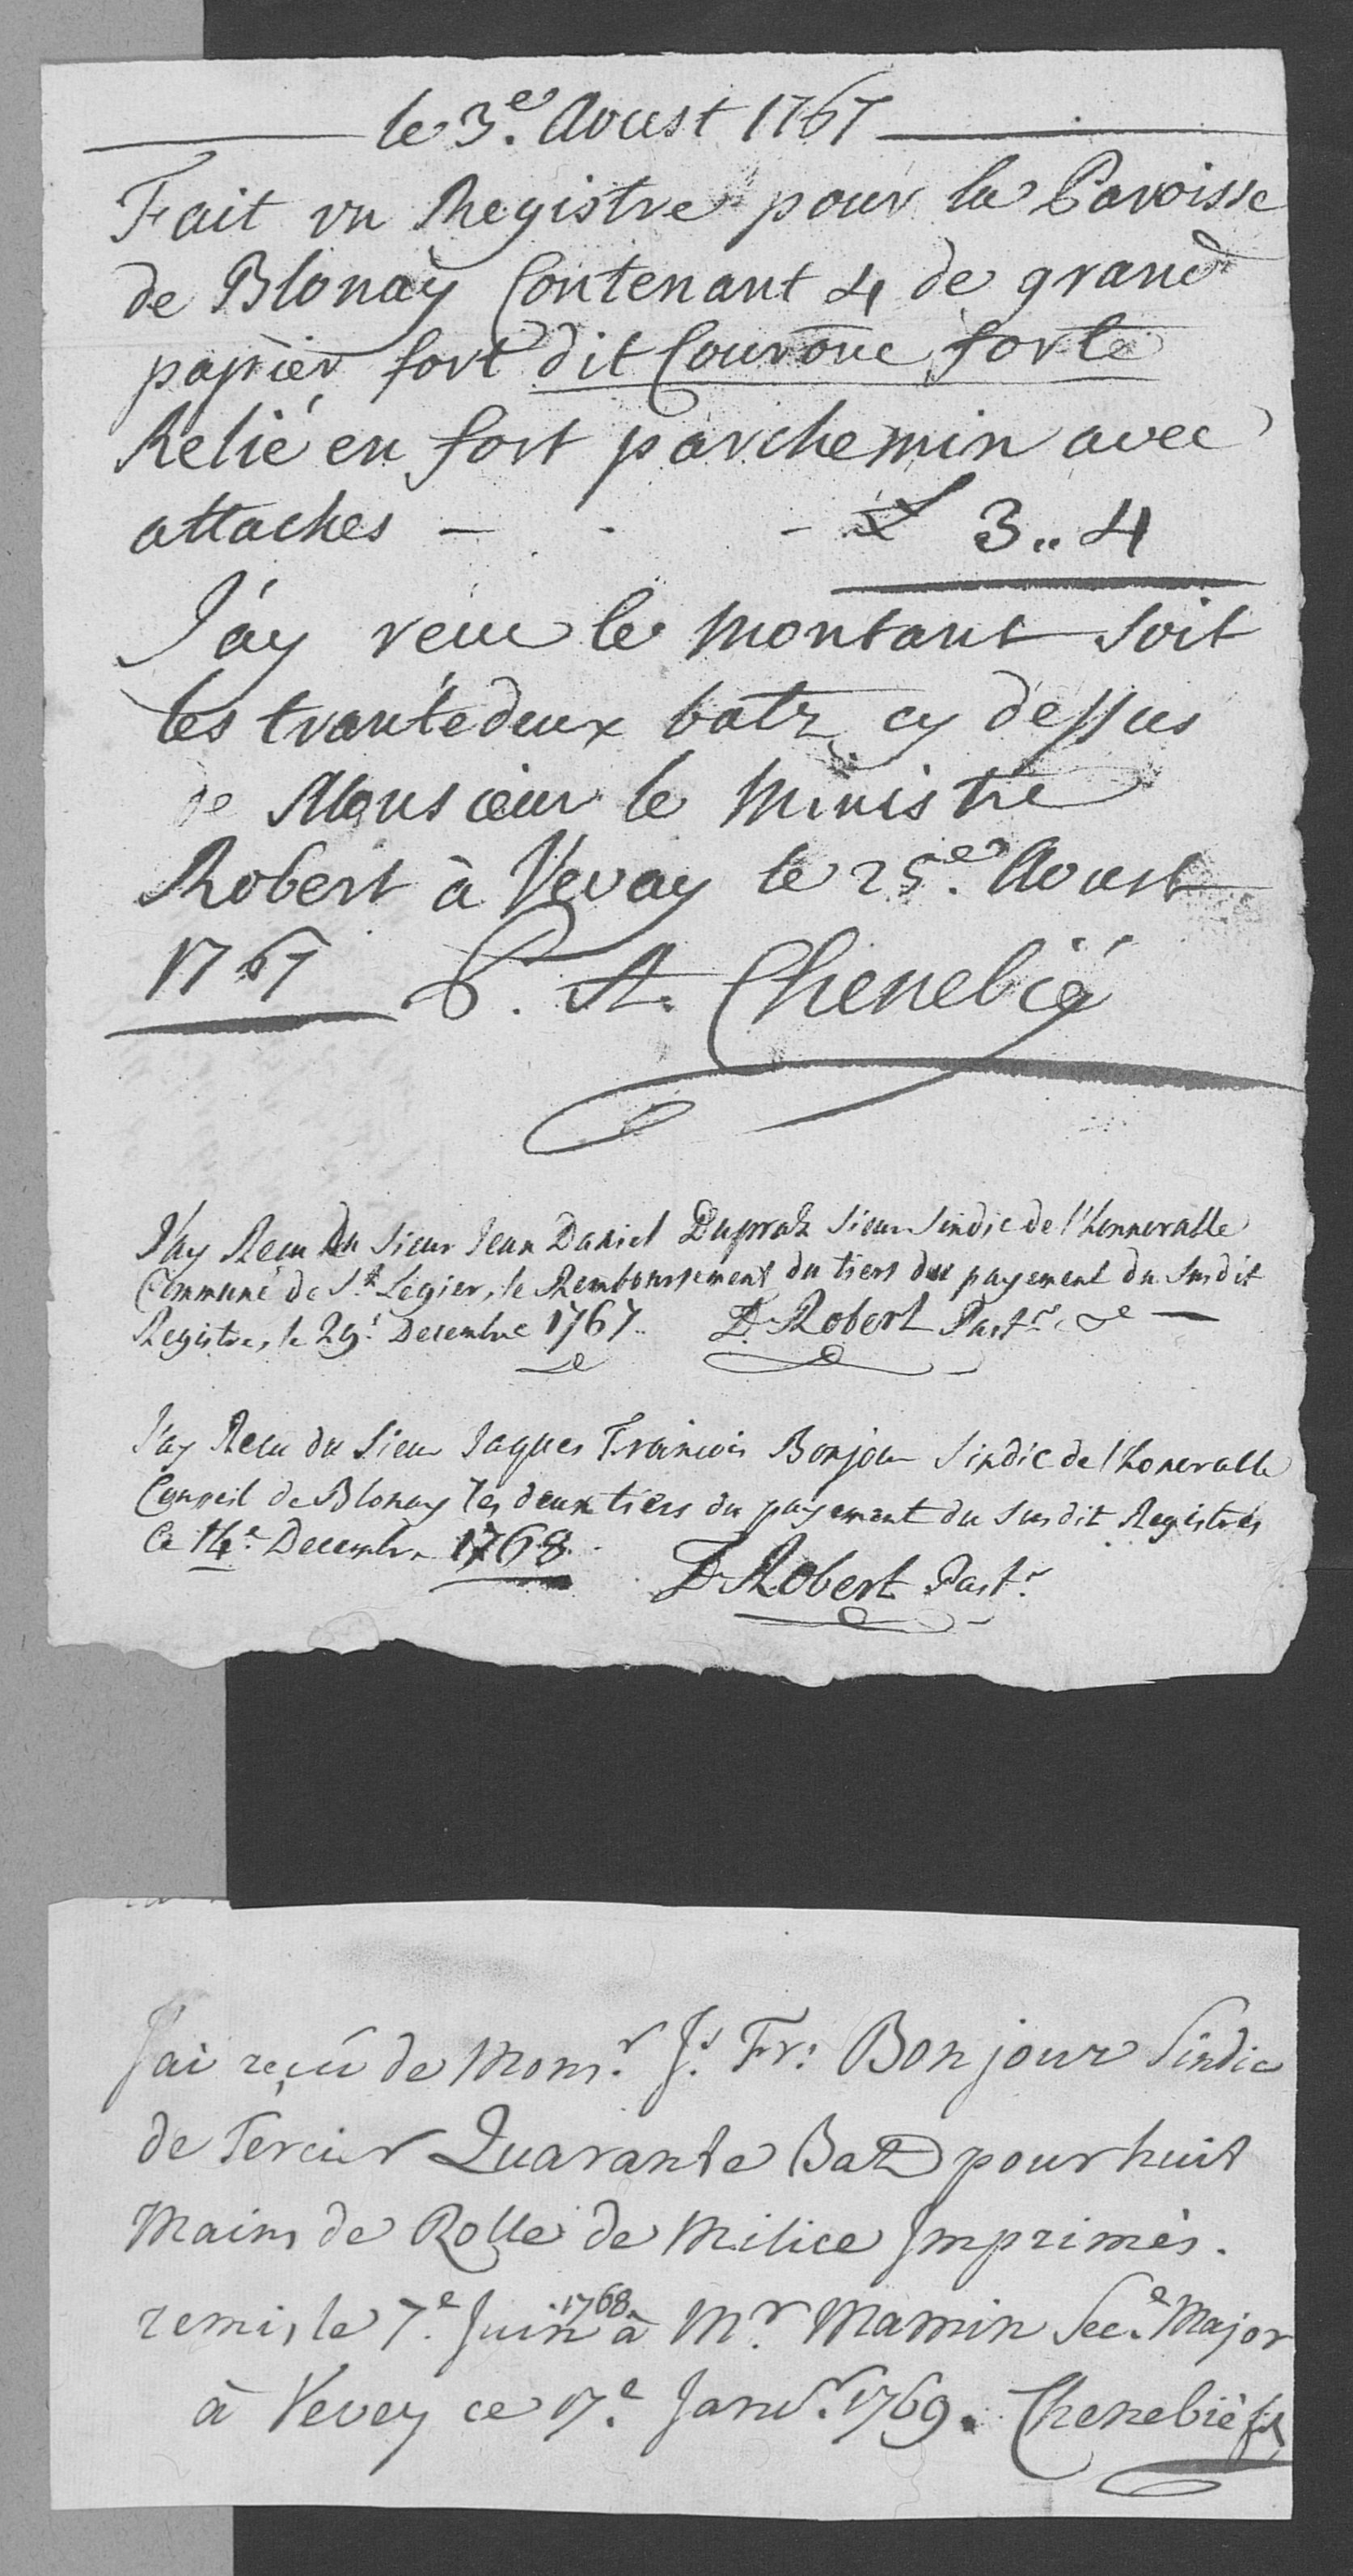 le 3.e Aoust 1767
Fait un Registre pour la Paroisse
de Blonay Contenant 4 de grand
papier fort dit Courone forte
Relié en fort parchemin avec
attaches - - - £ 3.. 4
J'ay reeu le montant soit
les trante deux batz cy dessus
de Monsieur le Ministre
Robert à Vevay le 25.e Aoust
1767 P. A. Chenebié
J'ay Reçu du Sieur Jean Daniel Dupraz Sieur Sindic de l'honnorable
Commune de St. Legier, le Remboursement du tiers du payement du susdit
Registre, le 29.e Decembre 1767. D. Robert Past.r
J'ay Recu du Sieur Jaques Francois Bonjour Sindic de l'honorable
Conseil de Blonay les deux tiers du payement du susdit Registre,
Ce 14.e Decembre 1768. D. Robert Past.r
J'ai reçû de Mons.r J.s Fr: Bonjour Sindic
de Tercier Quarante Batz pour huit
Mains de Rolle de Milice Imprimés.
remis le 7.e Juin 1768. à M.r Mamin Sec.e Major
à Vevey ce 17.e Janv.r 1769. Chenebié fils